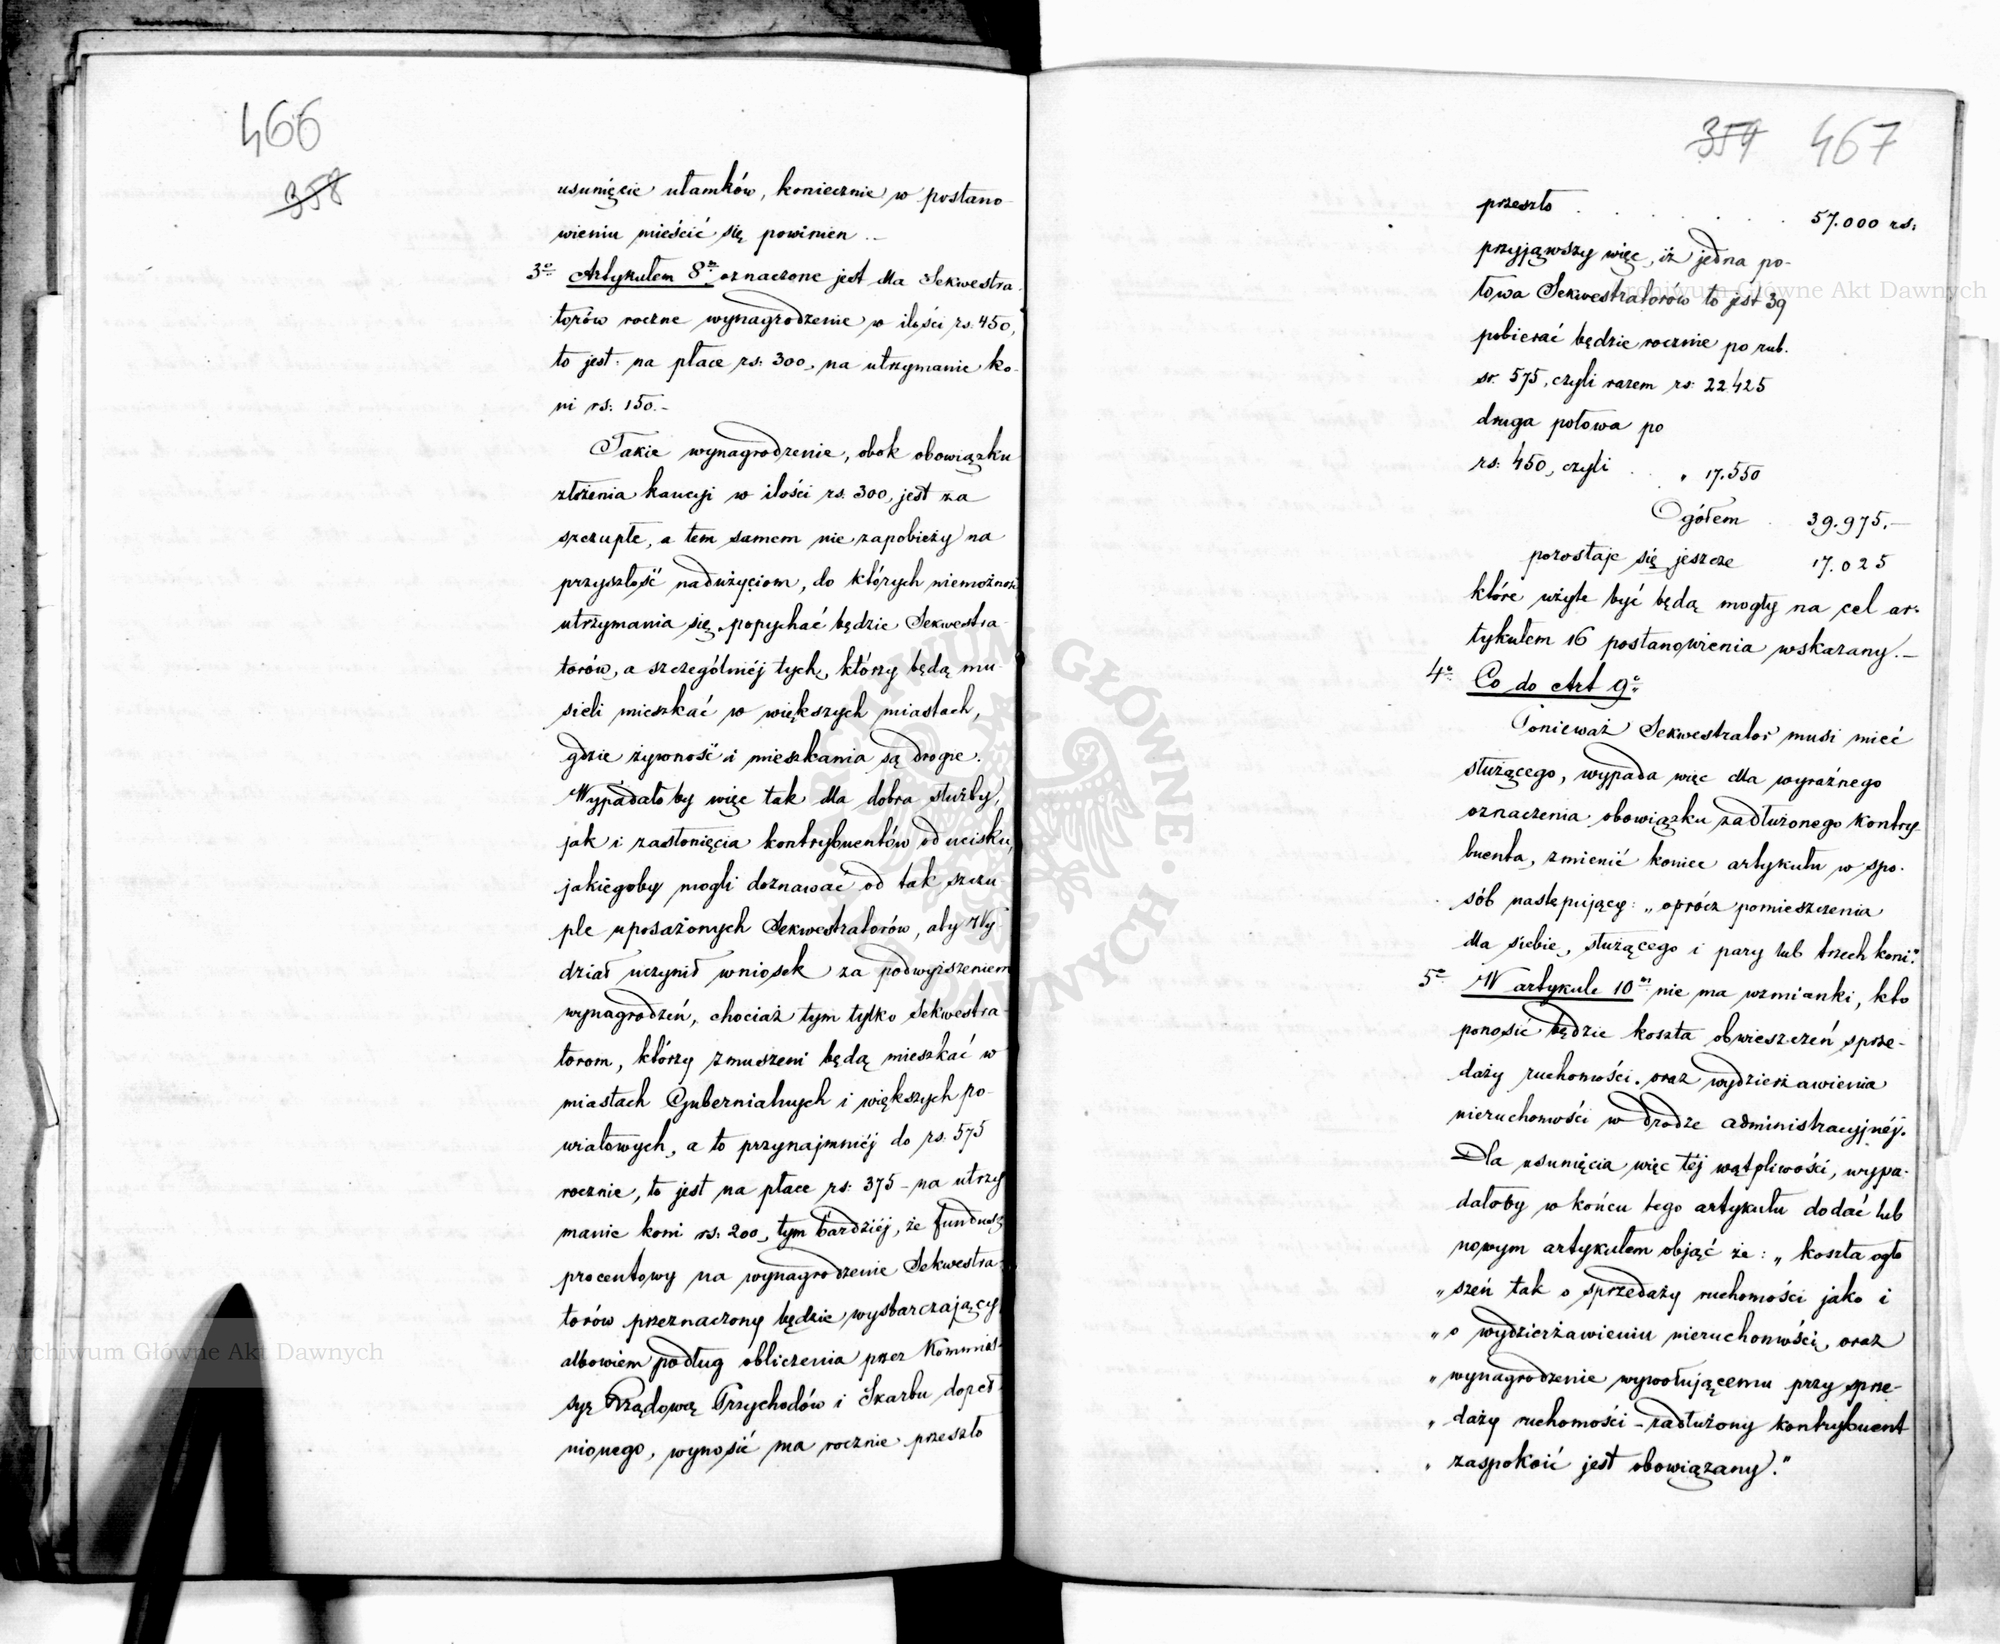 466
358
usunięcie ułamków, koniecznie w postano-
wieniu mieścić się powinien.-
3º Artykułem 8ᵐ oznaczone jest dla Sekwestra-
torów roczne wynagrodzenie w ilości rs: 450,
to jest: na płace rs: 300, na utrzymanie ko-
ni rs: 150.-
Takie wynagrodzenie, obok obowiązku
złożenia kaucyi w ilości rs. 300, jest za
szczupłe, a tem samem nie zapobieży na
przyszłość nadużyciom, do których niemożność
utrzymania się popychać będzie Sekwestra-
torów, a szczególniéj tych, którzy będą mu-
sieli mieszkać w większych miastach,
gdzie żywność i mieszkania są drogie.
Wypadałoby więc tak dla dobra służby,
jak i zasłonięcia kontrybuentów od ucisku,
jakiegoby mogli doznawać od tak szczu-
ple uposażonych Sekwestratorów, aby Wy-
dział uczynił wniosek za podwyższeniem
wynagrodzeń, chociaż tym tylko Sekwestra-
torom, którzy zmuszeni będą mieszkać w
miastach Gubernialnych i większych po-
wiatowych, a to przynajmniéj do rs: 575
rocznie, to jest na płace rs: 375 - na utrzy-
manie koni rs: 200, tym bardziéj, że fundusz
procentowy na wynagrodzenie Sekwestra-
torów przeznaczony będzie wystarczający,
albowiem podług obliczenia przez Kommis-
syę Rządową Przychodów i Skarbu dopeł-
nionego, wynosić ma rocznie przeszło
354 467
przeszło . . . . . . 57.000 rs:
przyjąwszy więc, iż jedna po-
łowa Sekwestratorów to jest 39
pobierać będzie rocznie po rub.
sr. 575, czyli razem rs: 22.425
druga połowa po
rs: 450, czyli . . " 17.550
Ogółem . 39.975.-
pozostaje się jeszcze 17.025
które użyte być będą mogły na cel ar-
tykułem 16 postanowienia wskazany.-
4º Co do Art 9º
Ponieważ Sekwestrator musi mieć
służącego, wypada więc dla wyraźnego
oznaczenia obowiązku zadłużonego kontry-
buenta, zmienić koniec artykułu w spo-
sób następujący: „oprócz pomieszczenia
dla siebie, służącego i pary lub trzech koni."
5º W artykule 10ᵐ nie ma wzmianki, kto
ponosić będzie koszta obwieszczeń sprze-
daży ruchomości, oraz wydzierżawienia
nieruchomości w drodze administracyjnéj.
Dla usunięcia więc téj wątpliwości, wypa-
dałoby w końcu tego artykułu dodać lub
nowym artykułem objąć że: „koszta ogło
„szeń tak o sprzedaży ruchomości jako i
„o wydzierżawieniu nieruchomości, oraz
„wynagrodzenie wywołującemu przy sprze-
„daży ruchomości - zadłużony kontrybuent
„zaspokoić jest obowiązany."
Archiwum Główne Akt Dawnych
Archiwum Główne Akt Dawnych
ARCHIWUM GŁÓWNE · AKT DAWNYCH ·